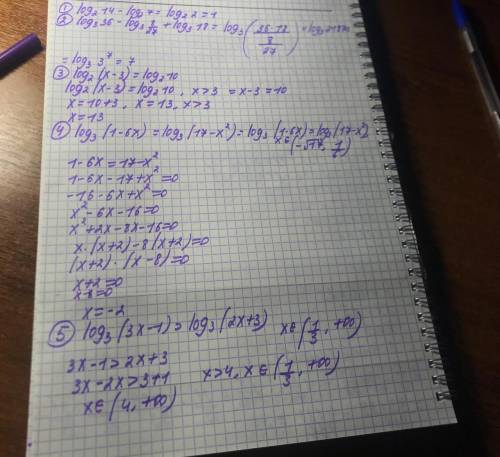 ① log₂ 14 - log₂ 7 = log₂ 2 = 1
② log₃ 36 - log₃ 8/27 + log₃ 18 = log₃ (36·18 / (8/27)) = log₃ 2187
= log₃ 3⁷ = 7
③ log₂ (x-3) = log₂ 10
log₂ (x-3) = log₂ 10, x>3 = x-3 = 10
x = 10+3, x = 13, x>3
x = 13
④ log₃ (1-6x) = log₃ (17-x²) = log₃ (1-6x) = log₃ (17-x²)
x ∈ (-√17, 1/6)
1-6x = 17-x²
1-6x-17+x² = 0
-16-6x+x² = 0
x²-6x-16=0
x²+2x-8x-16=0
x·(x+2)-8(x+2)=0
(x+2)·(x-8)=0
x+2=0
x-8=0
x = -2
⑤ log₃ (3x-1) > log₃ (2x+3) x∈(1/3, +∞)
3x-1>2x+3
3x-2x>3+1 x>4, x∈(1/3, +∞)
x∈(4, +∞)